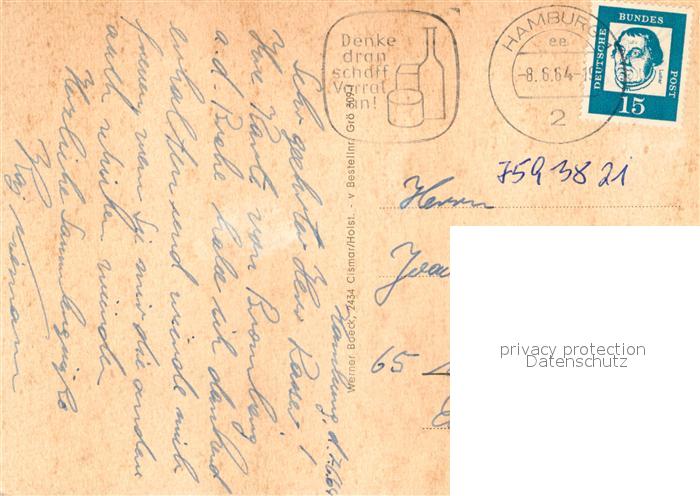 Denke
dran
schaff
Vorrat
an!
HAMBURG
ee
-8.6.64-1
2
DEUTSCHE
BUNDES
POST
Luther
15
7593821
Herrn
65
privacy protection
Datenschutz
Werner Boeck, 2434 Cismar/Holst. - v Bestellnr. Grö 309
Hamburg, d. 7.6.64
Sehr geehrter Herr Kasser!
Ihre Karte von Bromberg
a. d. Brahe habe ich dankend
erhalten und würde mich
freuen, wenn Sie mir die andern
auch schicken würden
Herzliche Sammlergrüße